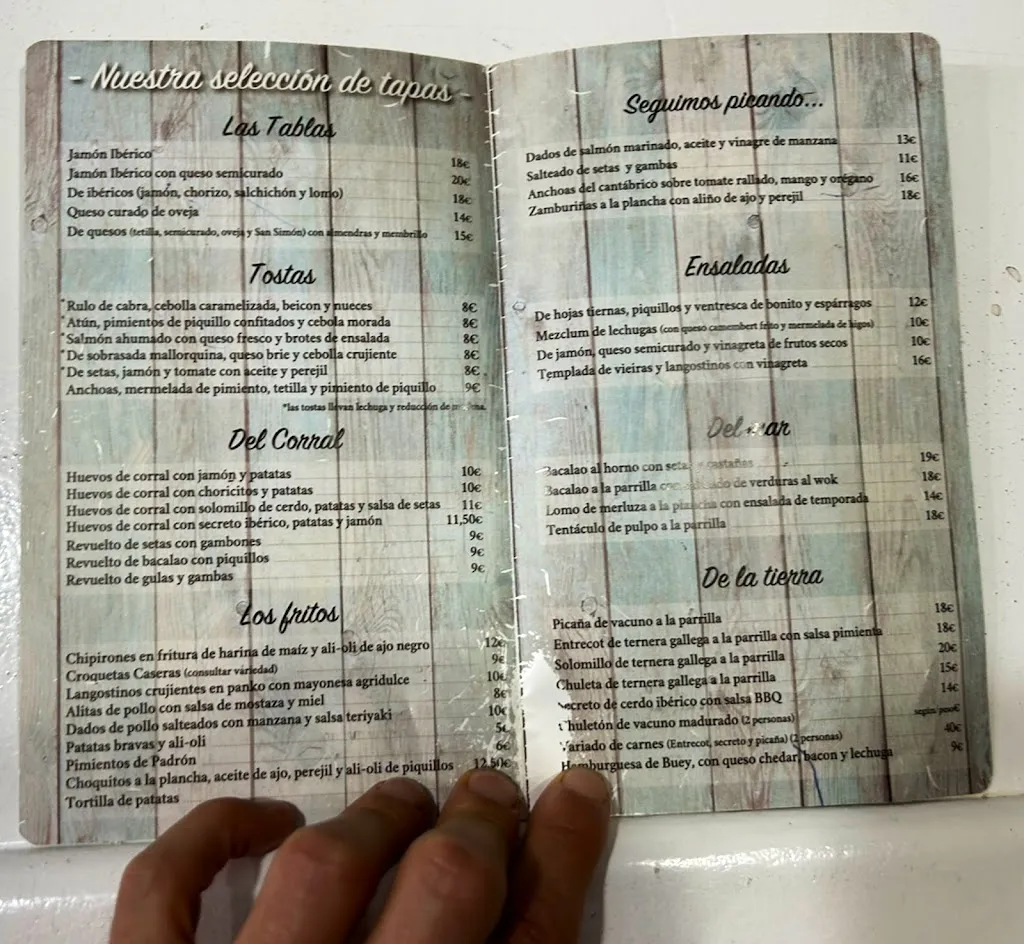 - Nuestra selección de tapas -
Las Tablas
Jamón Ibérico 18€
Jamón Ibérico con queso semicurado 20€
De ibéricos (jamón, chorizo, salchichón y lomo) 18€
Queso curado de oveja 14€
De quesos (tetilla, semicurado, oveja y San Simón) con almendras y membrillo 15€
Tostas
*Rulo de cabra, cebolla caramelizada, beicon y nueces 8€
*Atún, pimientos de piquillo confitados y cebola morada 8€
*Salmón ahumado con queso fresco y brotes de ensalada 8€
*De sobrasada mallorquina, queso brie y cebolla crujiente 8€
*De setas, jamón y tomate con aceite y perejil 8€
Anchoas, mermelada de pimiento, tetilla y pimiento de piquillo 9€
*las tostas llevan lechuga y reducción de
Del Corral
Huevos de corral con jamón y patatas 10€
Huevos de corral con choricitos y patatas 10€
Huevos de corral con solomillo de cerdo, patatas y salsa de setas 11€
Huevos de corral con secreto ibérico, patatas y jamón 11,50€
Revuelto de setas con gambones 9€
Revuelto de bacalao con piquillos 9€
Revuelto de gulas y gambas 9€
Los fritos
Chipirones en fritura de harina de maíz y ali-oli de ajo negro 12€
Croquetas Caseras (consultar variedad) 9€
Langostinos crujientes en panko con mayonesa agridulce 10€
Alitas de pollo con salsa de mostaza y miel 8€
Dados de pollo salteados con manzana y salsa teriyaki 10€
Patatas bravas y ali-oli 5€
Pimientos de Padrón 6€
Choquitos a la plancha, aceite de ajo, perejil y ali-oli de piquillos 12,50€
Tortilla de patatas
Seguimos picando...
Dados de salmón marinado, aceite y vinagre de manzana 13€
Salteado de setas y gambas 11€
Anchoas del cantábrico sobre tomate rallado, mango y orégano 16€
Zamburiñas a la plancha con aliño de ajo y perejil 18€
Ensaladas
De hojas tiernas, piquillos y ventresca de bonito y espárragos 12€
Mezclum de lechugas (con queso camembert frito y mermelada de higos) 10€
De jamón, queso semicurado y vinagreta de frutos secos 10€
Templada de vieiras y langostinos con vinagreta 16€
Del mar
Bacalao al horno con setas y castañas 19€
Bacalao a la parrilla con de verduras al wok 18€
Lomo de merluza a la plancha con ensalada de temporada 14€
Tentáculo de pulpo a la parrilla 18€
De la tierra
Picaña de vacuno a la parrilla 18€
Entrecot de ternera gallega a la parrilla con salsa pimienta 18€
Solomillo de ternera gallega a la parrilla 20€
Chuleta de ternera gallega a la parrilla 15€
Secreto de cerdo ibérico con salsa BBQ 14€
Chuletón de vacuno madurado (2 personas) según peso€
Variado de carnes (Entrecot, secreto y picaña) (2 personas) 40€
Hamburguesa de Buey, con queso chedar, bacon y lechuga 9€